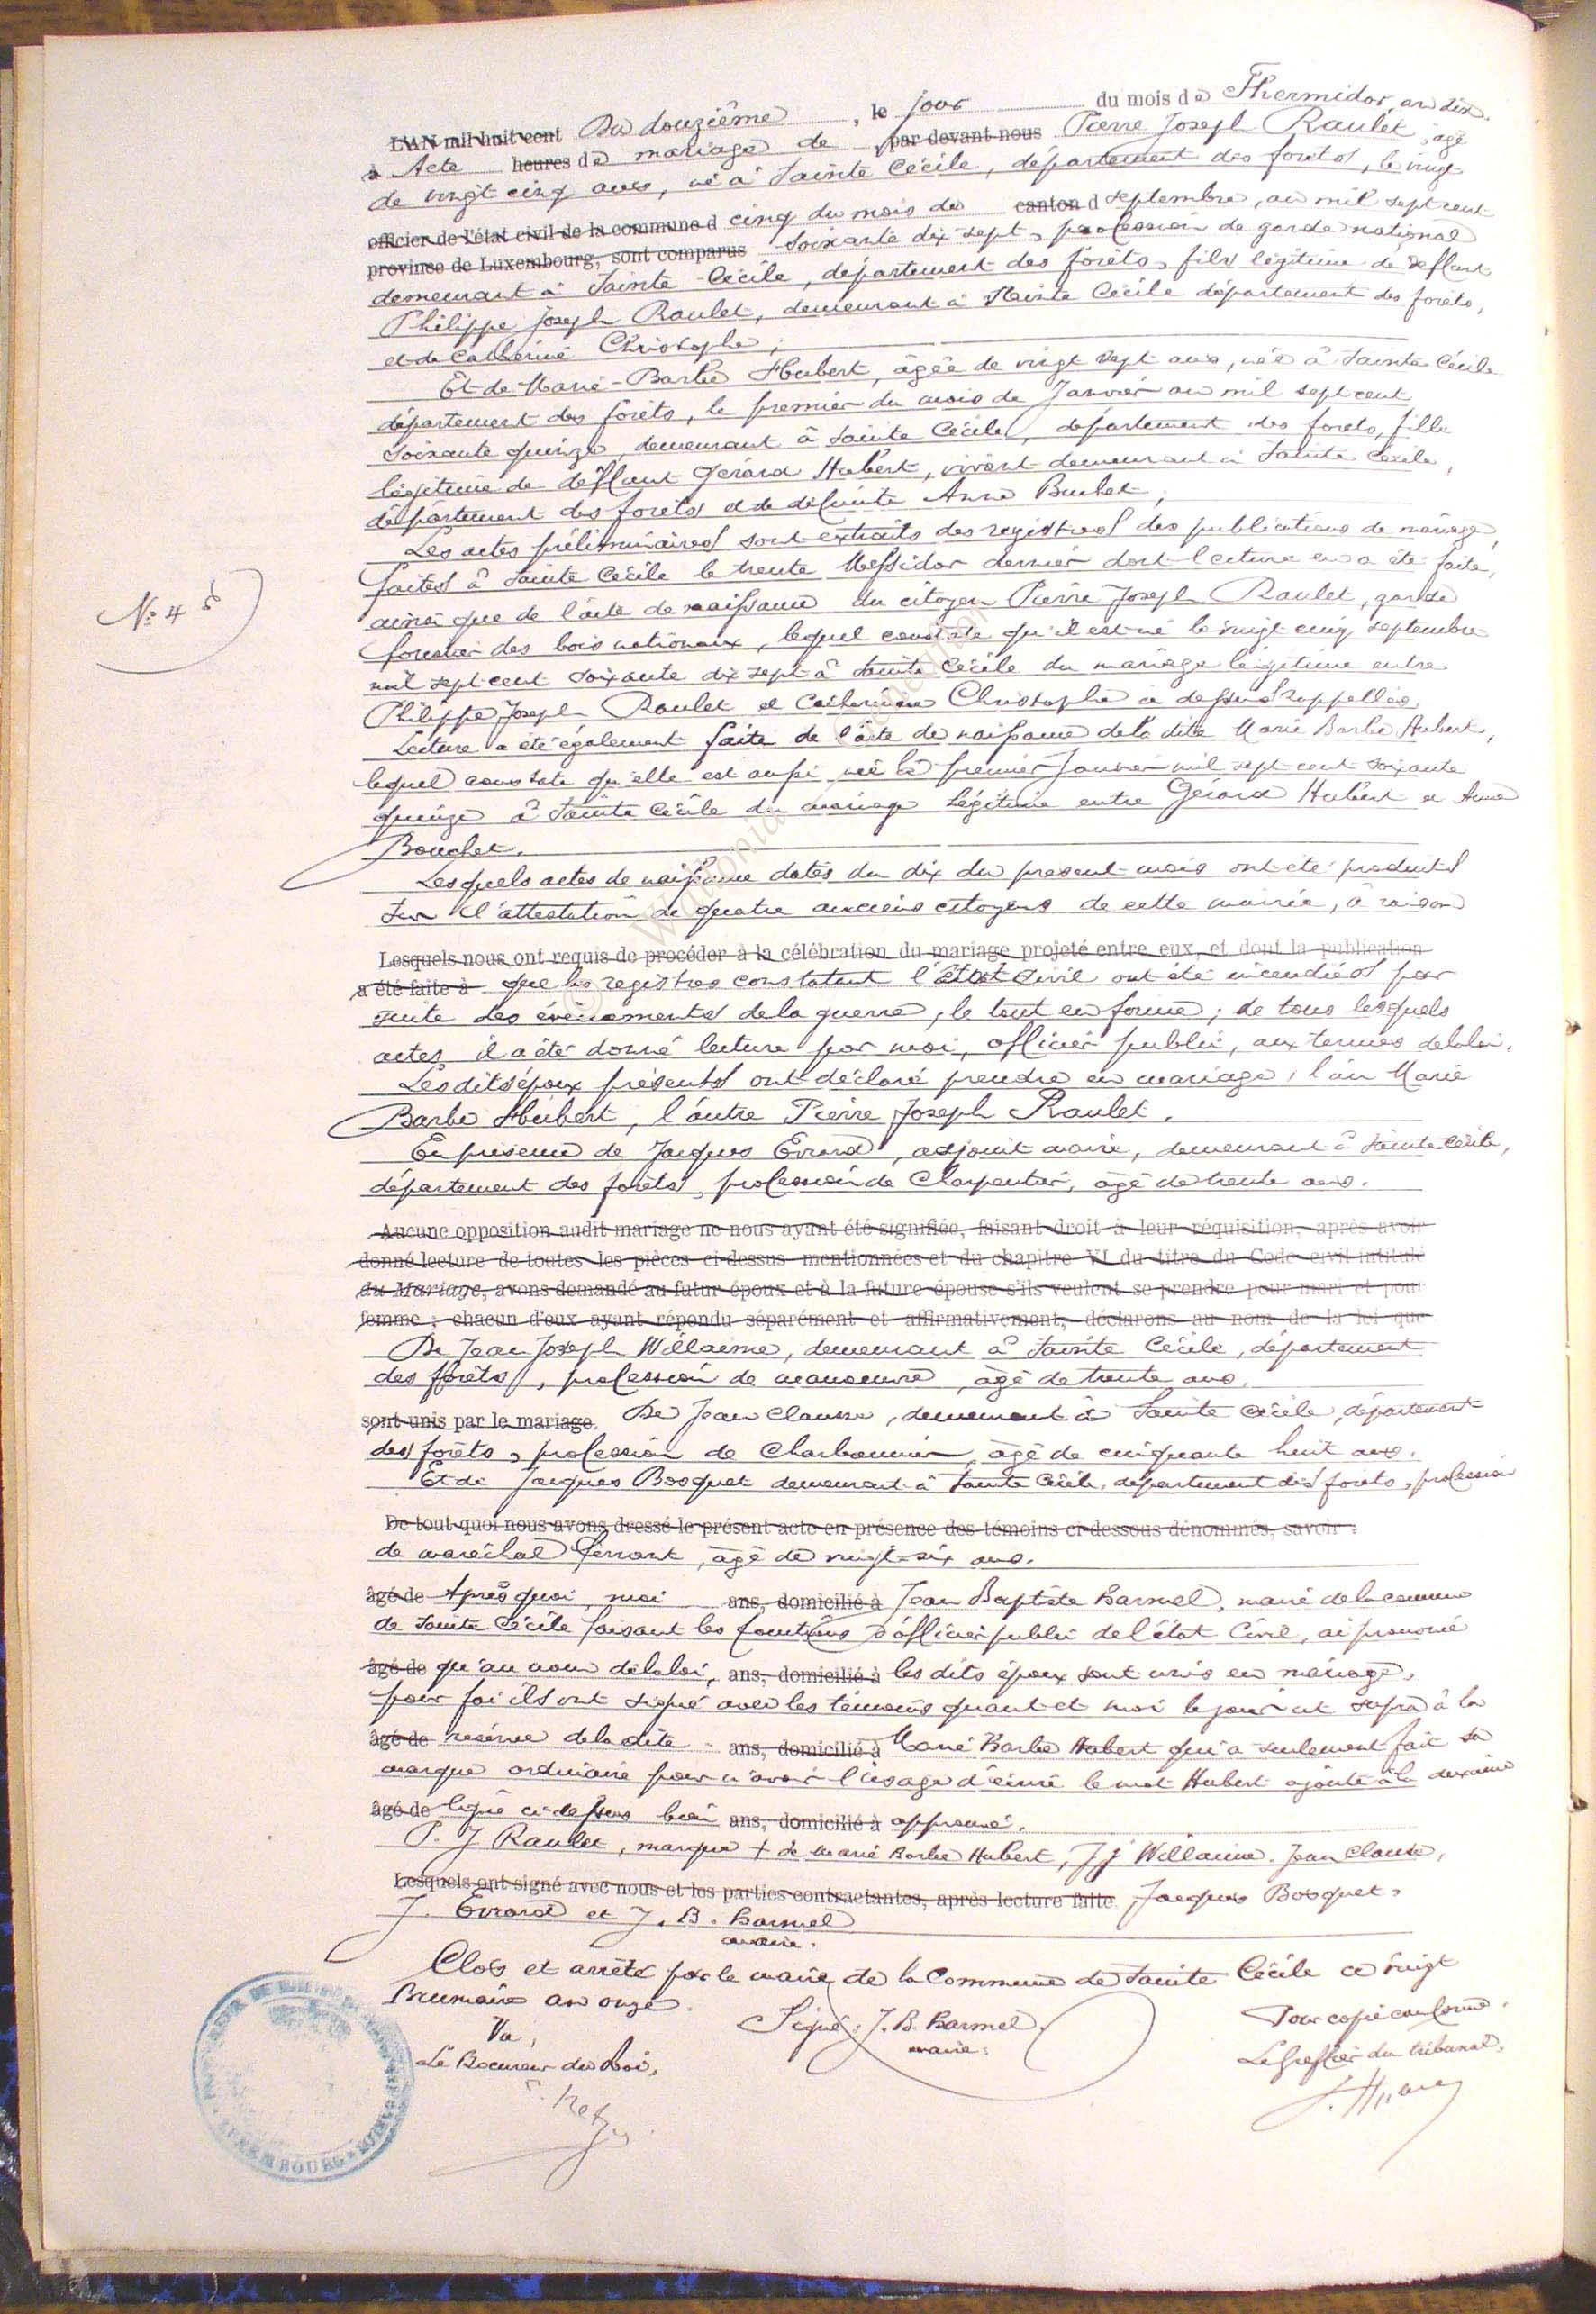 L'AN mil huit cent Du douzième, le jour du mois de Thermidor, an dix.
à Acte heures de mariage de par devant nous Pierre Joseph Raulet, âgé
de vingt cinq ans, né à Sainte Cécile, département des forêts, le vingt
officier de l'état civil de la commune d cinq du mois de canton d septembre, an mil sept cent
province de Luxembourg, sont comparus soixante dix sept, profession de garde national
demeurant à Sainte Cécile, département des forêts, fils légitime de deffunt
Philippe Joseph Raulet, demeurant à Sainte Cécile département des forêts,
et de Catherine Christophe;
Et de Marie-Barbe Hubert, âgée de vingt sept ans, née à Sainte Cécile
département des forêts, le premier du mois de Janvier an mil sept cent
soixante quinze, demeurant à Sainte Cécile, département des forêts, fille
légitime de deffunt Gérard Hubert, vivant demeurant à Sainte Cécile,
département des forêts et de défunte Anne Buchet;
Les actes préliminaires sont extraits des registres des publications de mariage,
faites à Sainte Cécile le trente Messidor dernier dont lecture en a été faite,
N° 4
ainsi que de l'acte de naissance du citoyen Pierre Joseph Raulet, garde
forestier des bois nationaux, lequel constate qu'il est né le vingt cinq septembre
mil sept cent soixante dix sept à Sainte Cécile du mariage légitime entre
Philippe Joseph Raulet et Catherine Christophe ci dessus rappellés
Lecture a été également faite de l'acte de naissance de la dite Marie Barbe Hubert,
lequel constate qu'elle est aussi née le premier Janvier mil sept cent soixante
quinze à Sainte Cécile du mariage légitime entre Gérard Hubert et Anne
Bouchet.
Lesquels actes de naissance datés du dix du present mois ont été produits
sur l'attestation de quatre anciens citoyens de cette mairie, à raison
Lesquels nous ont requis de procéder à la célébration du mariage projeté entre eux, et dont la publication
a été faite à que les registres constatant l'état civil ont été incendiés par
suite des événements de la guerre, le tout en forme; de tous lesquels
actes il a été donné lecture par moi, officier public, aux termes de la loi.
Lesdits époux présents ont déclaré prendre en mariage, l'un Marie
Barbe Hubert, l'autre Pierre Joseph Raulet.
En présence de Jacques Evrard, adjoint maire, demeurant à Sainte Cécile,
département des forêts, profession de Charpentier, âgé de trente ans.
Aucune opposition audit mariage ne nous ayant été signifiée, faisant droit à leur réquisition, après avoir
donné lecture de toutes les pièces ci-dessus mentionnées et du chapitre VI du titre du Code civil intitulé
du Mariage, avons demandé au futur époux et à la future épouse s'ils veulent se prendre pour mari et pour
femme; chacun d'eux ayant répondu séparément et affirmativement, déclarons au nom de la loi que
De Jean Joseph Willaime, demeurant à Sainte Cécile, département
des forêts, profession de manoeuvre, âgé de trente ans.
sont unis par le mariage. De Jean Clausse, demeurant à Sainte Cécile, département
des forêts, profession de Charbonnier, âgé de cinquante huit ans.
Et de Jacques Bosquet demeurant à Sainte Cécile, département des forêts, profession
De tout quoi nous avons dressé le présent acte en présence des témoins ci-dessous dénommés, savoir :
de maréchal ferrant, âgé de vingt-six ans.
âgé de Après quoi, moi ans, domicilié à Jean Baptiste Barmel, maire de la commune
de Sainte Cécile faisant les fonctions d'officier public de l'état Civil, ai prononcé
âgé de qu'au nom de la loi, ans, domicilié à les dits époux sont unis en mariage,
pour foi ils ont signé avec les témoins quant et moi le jour ut supra à la
âgé de réserve de la dite ans, domicilié à Marie Barbe Hubert qui a seulement fait sa
marque ordinaire pour n'avoir l'usage d'écrire le mot Hubert ajouté à la deuxième
âgé de ligne ci-dessus bien ans, domicilié à approuvé.
P. J Raulet, marque + de Marie Barbe Hubert, J J Willaime. Jean Clausse,
Lesquels ont signé avec nous et les parties contractantes, après lecture faite. Jacques Bosquet,
J. Evrard et J. B. Barmel
maire.
Clos et arrêté par le maire de la Commune de Sainte Cécile ce vingt
Brumaire an onze.
Signé: J. B. Barmel
maire.
Pour copie conforme.
Vu,
Le Greffier du tribunal,
Le Procureur du Roi,